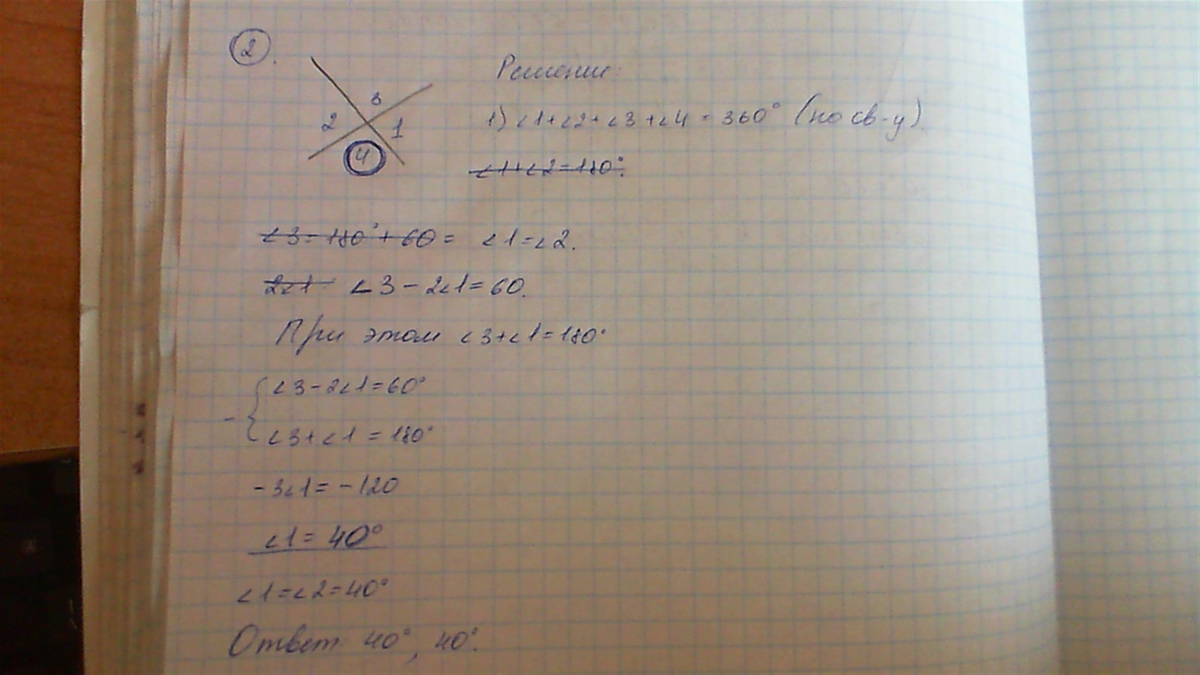 2.
3
2
1
4
Решение:
1) ∠1+∠2+∠3+∠4 = 360° (по св-у)
∠1+∠2=180°.
∠3=180°+60= ∠1=∠2.
2∠1 ∠3-2∠1=60.
При этом ∠3+∠1=180°
- { ∠3-2∠1=60°
∠3+∠1=180°
-3∠1=-120
∠1= 40°
∠1=∠2=40°
Ответ 40°, 40°.